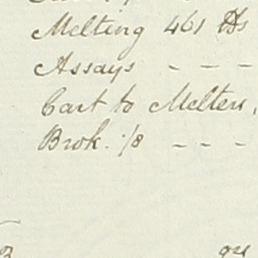 Melting 461 lbs
Assays - - -
Cart to Melters,
Brok. ·/8 - - -